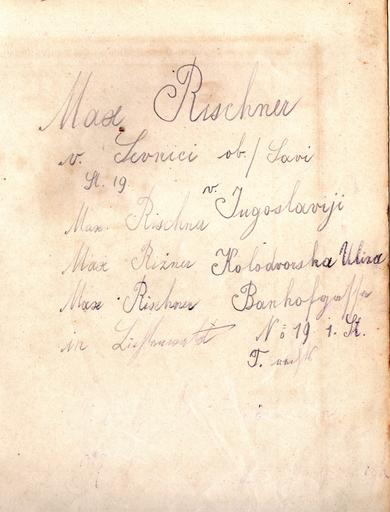 Max Rischner
v. Sevnici ob./ Savi
St. 19
v. Jugoslaviji
Max. Rischna
Max Rižner Kolodvorska Ulica
Max Rischner Banhofgasse
in Lichtenwald No 19 1. St.
T.